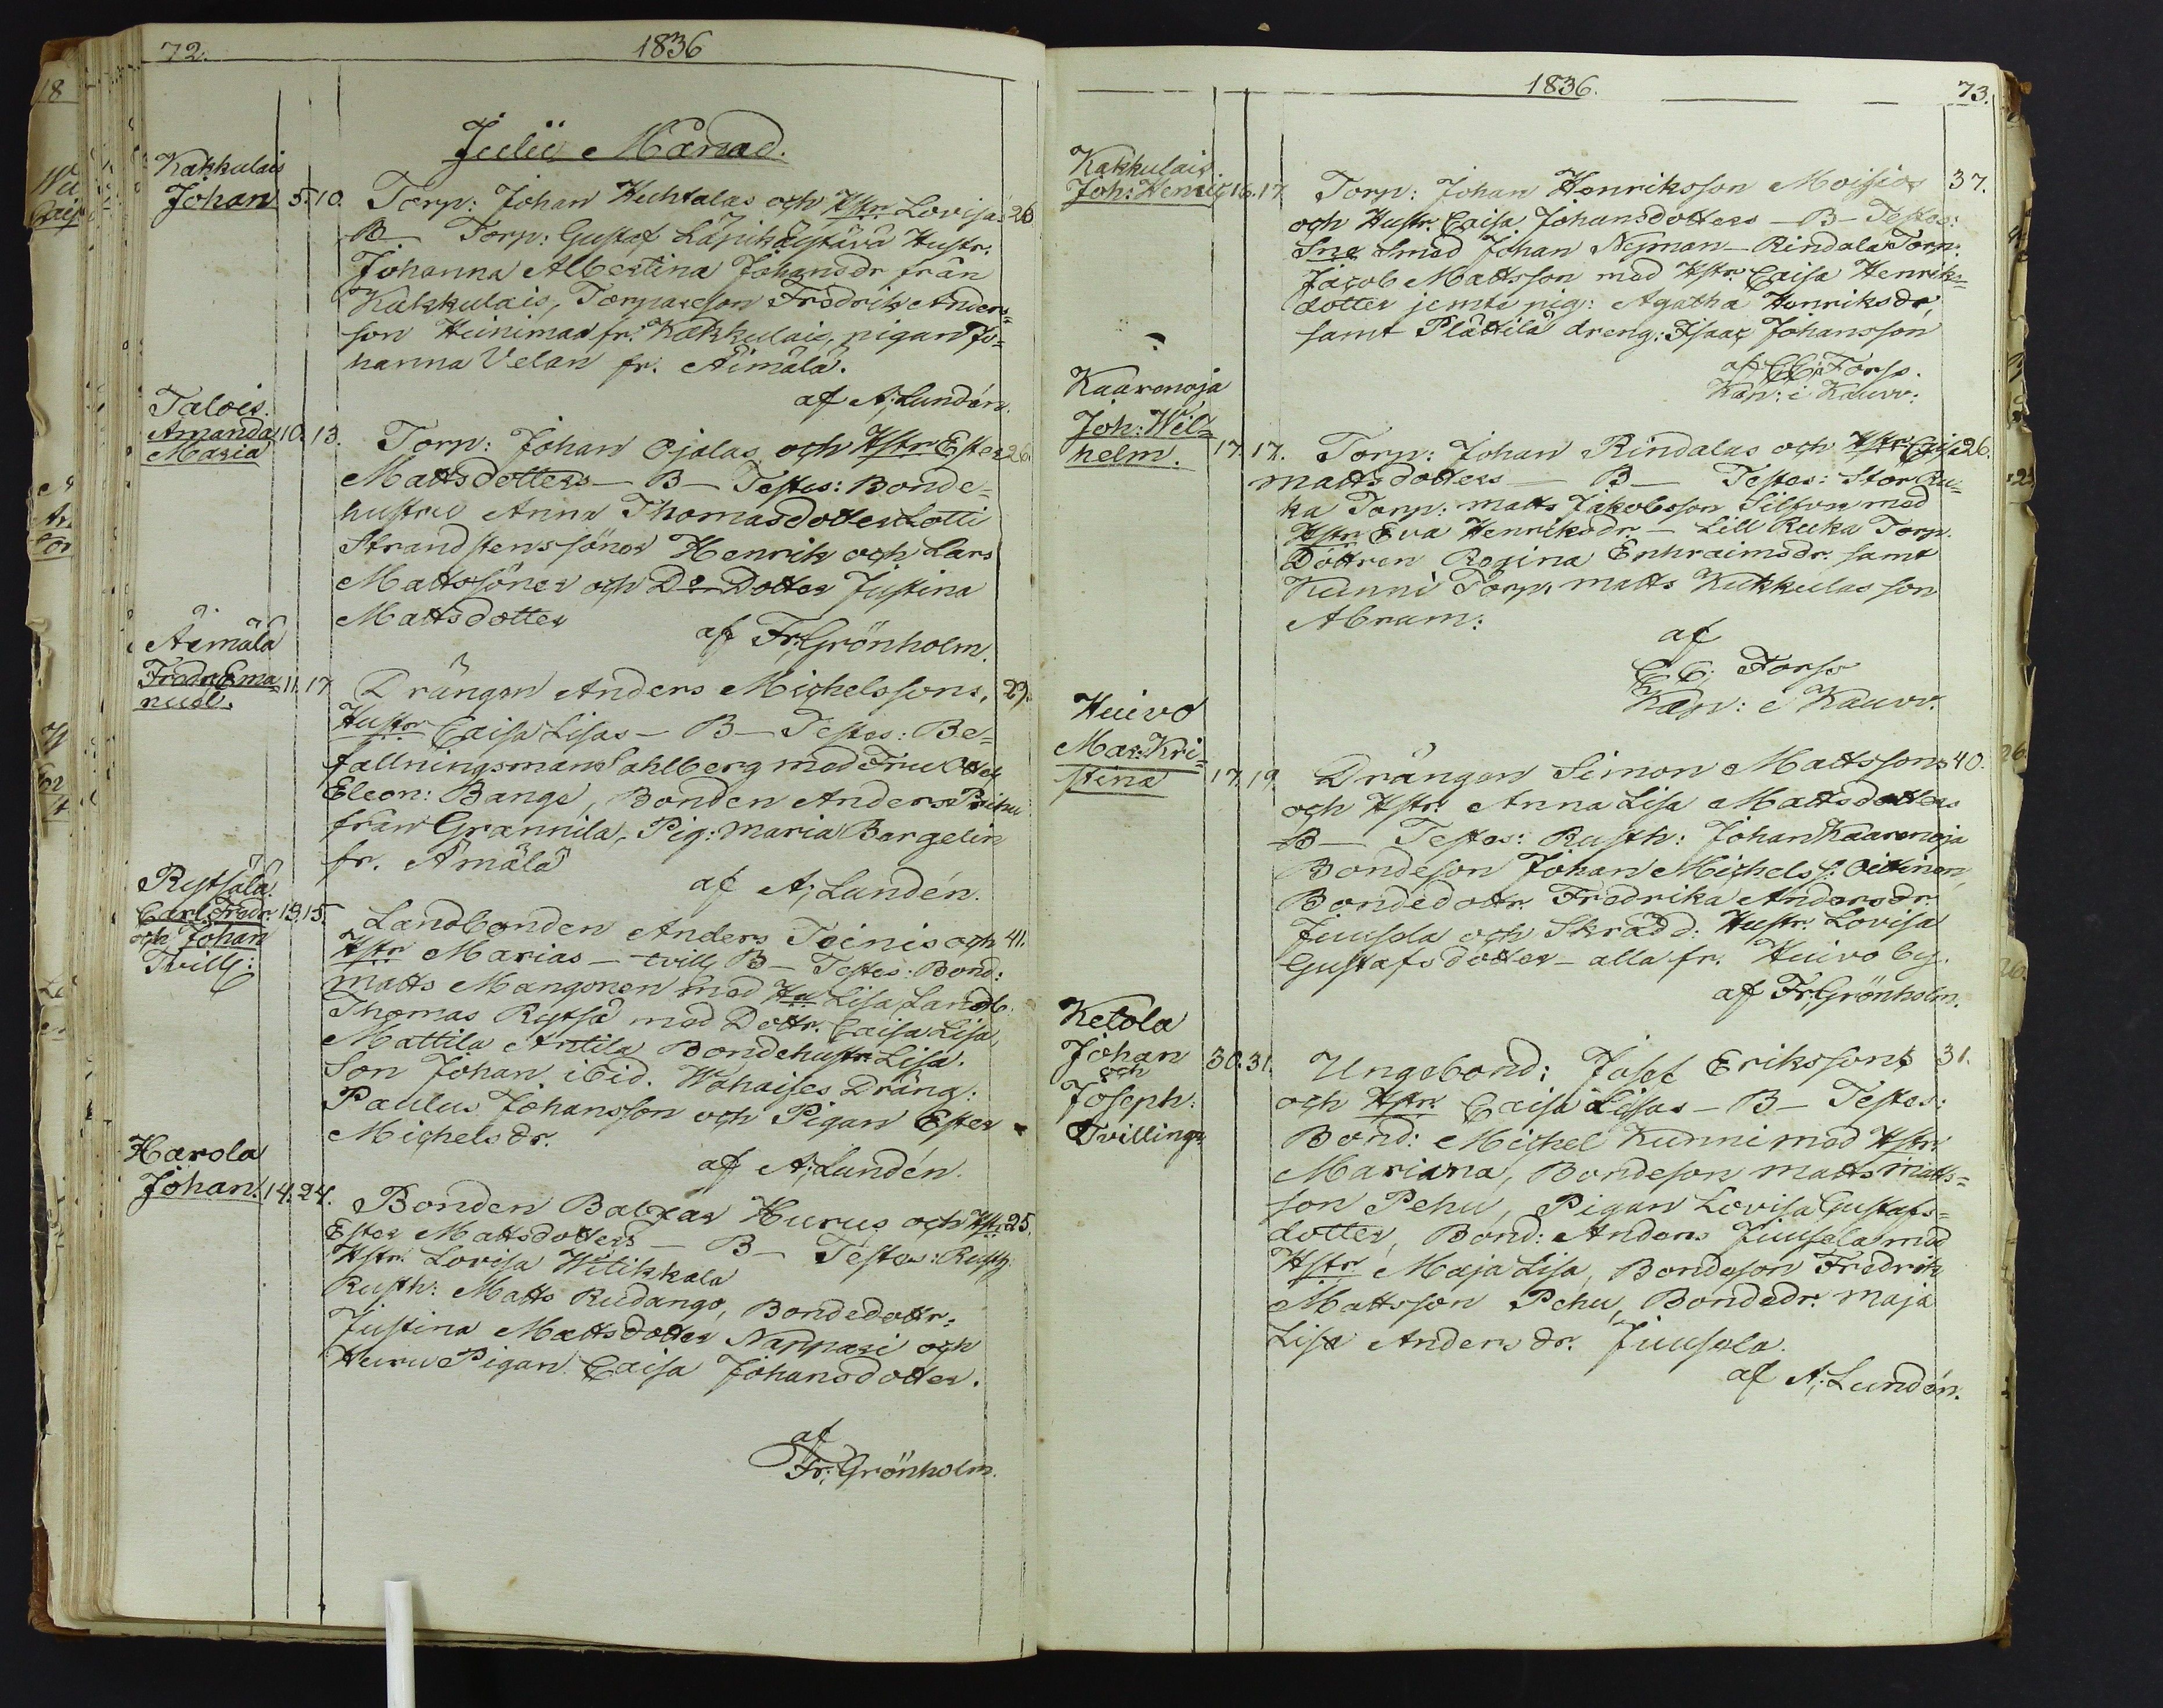 72.
1836
Julii Månad.
Kakkulais
Johan 5. 10. Torp: Johan Huhtalas och Hstr Lovisas 26
B — Torp: Gustaf Hustr.
Johanna Albertina Johansdr från
Kakkulais, Torpareson Fredrik Anders=
son Heinimaa fr. Kakkulais, pigan Jo=
hanna Velan fr. Äimälä.
af A; Lundén.
Talois.
Amanda 10. 13. Torp: Johan Ojalas och Hstr Ester 26.
Maria
Mattsdotters — B — Testes: Bonde=
hustru Anna Thomasdotter Lotti
Strandstens söner Henrik och Lars
Mattssöner och Dotter Justina
Mattsdotter
af Fr; Grönholm.
Äimälä
Fredr. Ema= 11. 17. Drängen Anders Michelssons, 29.
nuel.
Hustr Caisa Lisas — B — Testes: Be=
fallningsman Sahlberg med Fru
Eleon: Bange, Bonden Anders
från Grannila, Pig: Maria Bergelin
fr. Ämälä
af A; Lundén.
Rytsälä.
Carl Fredr. 13. 15. Landbonden Anders Toinis och 41.
och Johan
Tvill:
Hstr Marias — tvill B — Testes: Bond:
Matts Mangonen med Hu Lisa, Landb.
Thomas Rytsä med Dottr. Caisa Lisa,
Mattila Antila Bondehustr Lisa.
Son Johan ibid. Wähaises Dräng:
Paulus Johansson och Pigan Ester
Michelsdr.
af A; Lundén.
Harola
Johan. 14. 24. Bonden Balzar Hurus och Hstr 25.
Ester Mattsdotters — B — Testes: Rusth.
Hstr. Lovisa Witikkala
Rusth: Matts Rudango, Bondedottr.
Justina Mattsdotter Nappari och
Huru Pigan Caisa Johansdotter.
af
Fr; Grönholm.
1836.
73.
Kakkulais
Joh: Henric 16. 17. Torp: Johan Henriksson Moisios 37.
och Hustr. Caisa Johansdotters — B — Testes:
Smed Johan Nyman — Rindala Torp:
Jacob Mattsson med Hstr. Caisa Henriks=
dotter jemte pig: Agatha Henriksdr,
samt Plättilä dreng: Isaac Johansson
af Forss.
Kap: i Kauv:
Kaarenoja
Joh: Wil=
helm. 17. 17. Torp: Johan Rindalas och Hstr Caisa 26.
Mattsdotters — B — Testes: Stor Ru=
ka Torp: Matts Jakobsson Silfon med
Hstr Eva Henriksdr. — Lill Ruka Torp.
Dottren Regina Enhraimsdr. samt
Kunni Torp. Matts Kukkulas son
Abram:
af
Forss
Kap: i Kauv.
Huivo
Mar: Kri=
stina 17. 19. Drängen Simon Mattssons 40.
och Hstr. Anna Lisa Mattsdotters
B — Testes: Rusth: Johan Kaarenoja
Bondeson Johan Michelss: Oittinen,
Bondedottr. Fredrika Andersdr.
Juusola och Skrädd: Hustr. Lovisa
Gustafsdotter — alla fr. Huivo by.
af Fr; Grönholm.
Ketola
Johan 30. 31. Ungebond: Josef Erikssons 31.
och
Joseph:
Tvillingr.
och Hstr. Caisa Lisas — B — Testes:
Bond: Michel Kunni med Hstr.
Mariana, Bondeson Matts Matts=
son Pehu, Pigan Lovisa Gustafs=
dotter, Bond: Anders Juusola med
Hstr Maja Lisa, Bondeson Fredrik
Mattsson Pehu, Bondedr. Maja
Lisa Andersdr. Juusola.
af A; Lundén.